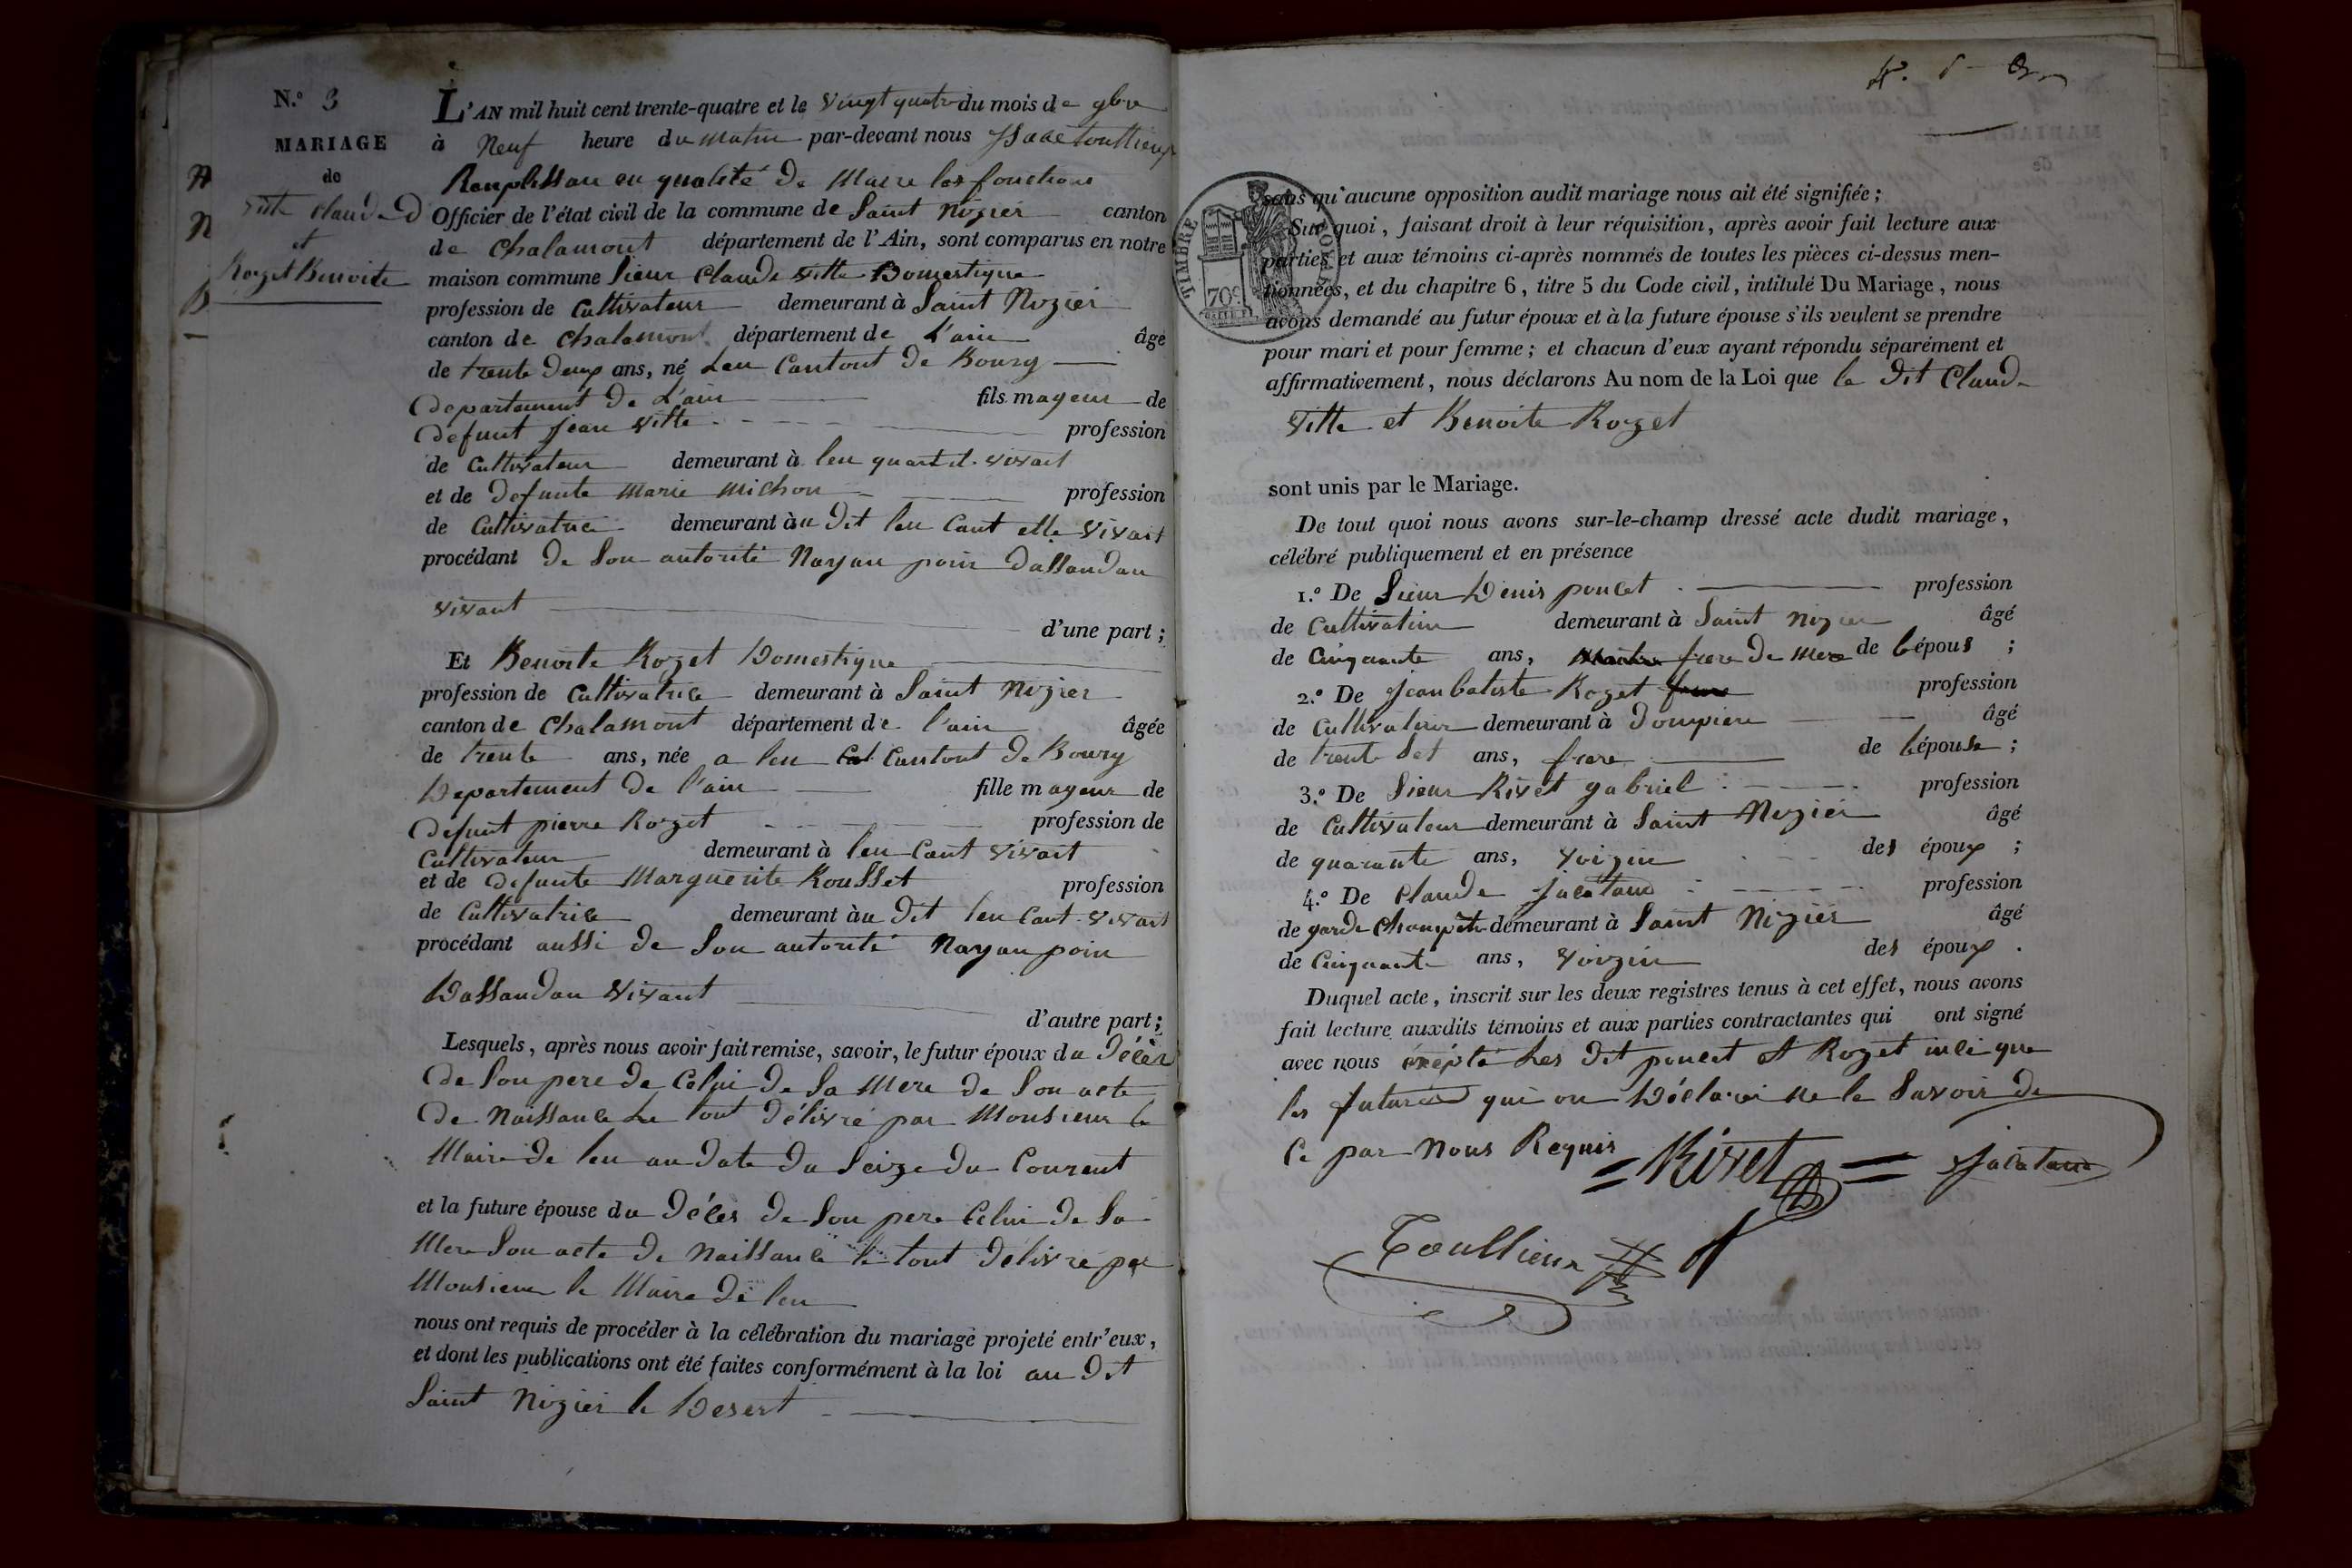 N.º 3
MARIAGE
de
Vitte Claude
et
Rozet Benoite
L'AN mil huit cent trente-quatre et le vingt quatre du mois de 9bre
à Neuf heure du matin par-devant nous
Remplissan en qualité de Maire les fonctions
Officier de l'état civil de la commune de Saint Nizier canton
de Chalamont département de l'Ain, sont comparus en notre
maison commune Sieur Claude Vitte Domestique
profession de Cultivateur demeurant à Saint Nizier
canton de Chalamont département de L'ain âgé
de trente deux ans, né Leu Cantont de Bourg
Departement De L'ain fils mageur de
Defunt Jean Vitte profession
de Cultivateur demeurant à leu quant il vivait
et de Defunte Marie Michon profession
de Cultivatrice demeurant àu Dit leu Cant elle vivait
procédant De Son autorité Nayan poin Dassandan
vivant
d'une part ;
Et Benoite Rozet Domestique
profession de Cultivatrice demeurant à Saint Nizier
canton de Chalamont département de l'ain âgée
de trente ans, née a leu Cantont De Bourg
Departement De l'ain fille mageur de
Defunt pierre Rozet profession de
Cultivateur demeurant à leu Cant vivait
et de Defunte Marguerite Rousset profession
de Cultivatrice demeurant àu Dit leu Cant vivait
procédant aussi de Son autorité Nayan poin
Dassandan vivant
d'autre part ;
Lesquels, après nous avoir fait remise, savoir, le futur époux du Décès
De Son pere De Celui De Sa Mere De Son acte
De Naissance Le tout Délivré par Monsieur le
Maire De leu au Date Du Seize Du Courent
et la future épouse du Décès De Son pere Celui De Sa
Mere Son acte De Naissance le tout Délivré par
Monsieur le Maire De leu
nous ont requis de procéder à la célébration du mariage projeté entr'eux,
et dont les publications ont été faites conformément à la loi au Dit
Saint Nizier le Desert
sans qu'aucune opposition audit mariage nous ait été signifiée ;
Sur quoi, faisant droit à leur réquisition, après avoir fait lecture aux
parties et aux témoins ci-après nommés de toutes les pièces ci-dessus men-
tionnées, et du chapitre 6, titre 5 du Code civil, intitulé Du Mariage, nous
avons demandé au futur époux et à la future épouse s'ils veulent se prendre
pour mari et pour femme ; et chacun d'eux ayant répondu séparément et
affirmativement, nous déclarons Au nom de la Loi que le Dit Claude
Vitte et Benoite Rozet
sont unis par le Mariage.
De tout quoi nous avons sur-le-champ dressé acte dudit mariage,
célébré publiquement et en présence
1.º De Sieur Denis poncet profession
de Cultivateur demeurant à Saint Nizier âgé
de Cinquante ans, frere De Mere de l'épous ;
2.º De Jean batiste Rozet profession
de Cultivateur demeurant à Dompiere âgé
de trente set ans, frere de l'épouse ;
3.º De Sieur Rivet gabriel profession
de Cultivateur demeurant à Saint Nizier âgé
de quarante ans, voizin des époux ;
4.º De Claude Jacataud profession
de garde Champetre demeurant à Saint Nizier âgé
de Cinquante ans, voizin des époux .
Duquel acte, inscrit sur les deux registres tenus à cet effet, nous avons
fait lecture auxdits témoins et aux parties contractantes qui ont signé
avec nous Les Dit poncet et Rozet que
les qui on Déclaré ne le Savoir De
Ce par Nous Requis
Rivet
Jacataud
Toullieux
TIMBRE ROYAL
70c